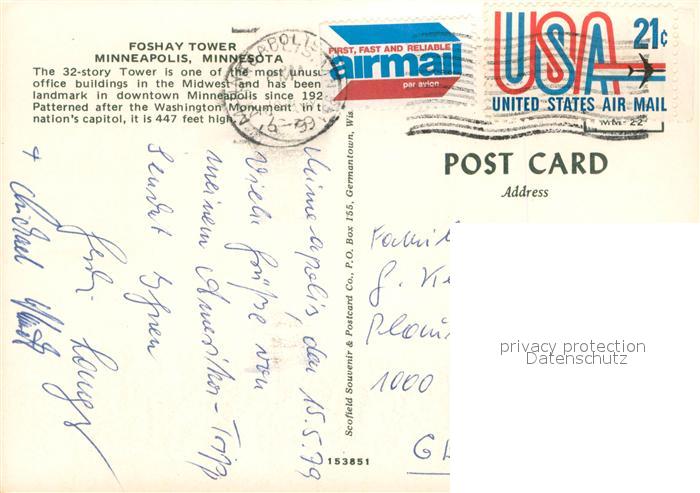 FOSHAY TOWER
MINNEAPOLIS, MINNESOTA
The 32-story Tower is one of the most unusu
office buildings in the Midwest and has been
landmark in downtown Minneapolis since 192
Patterned after the Washington Monument in t
nation's capitol, it is 447 feet high.
FIRST, FAST AND RELIABLE
airmail
par avion
USA 21c
UNITED STATES AIR MAIL
POST CARD
Address
Minneapolis, den 15.5.79
Viele Grüße von
meinem Amerika-Tripp
sendet Ihnen
+ Michael
Scofield Souvenir & Postcard Co., P.O. Box 155, Germantown, Wis
Famil
G.
1000
153851
privacy protection
Datenschutz